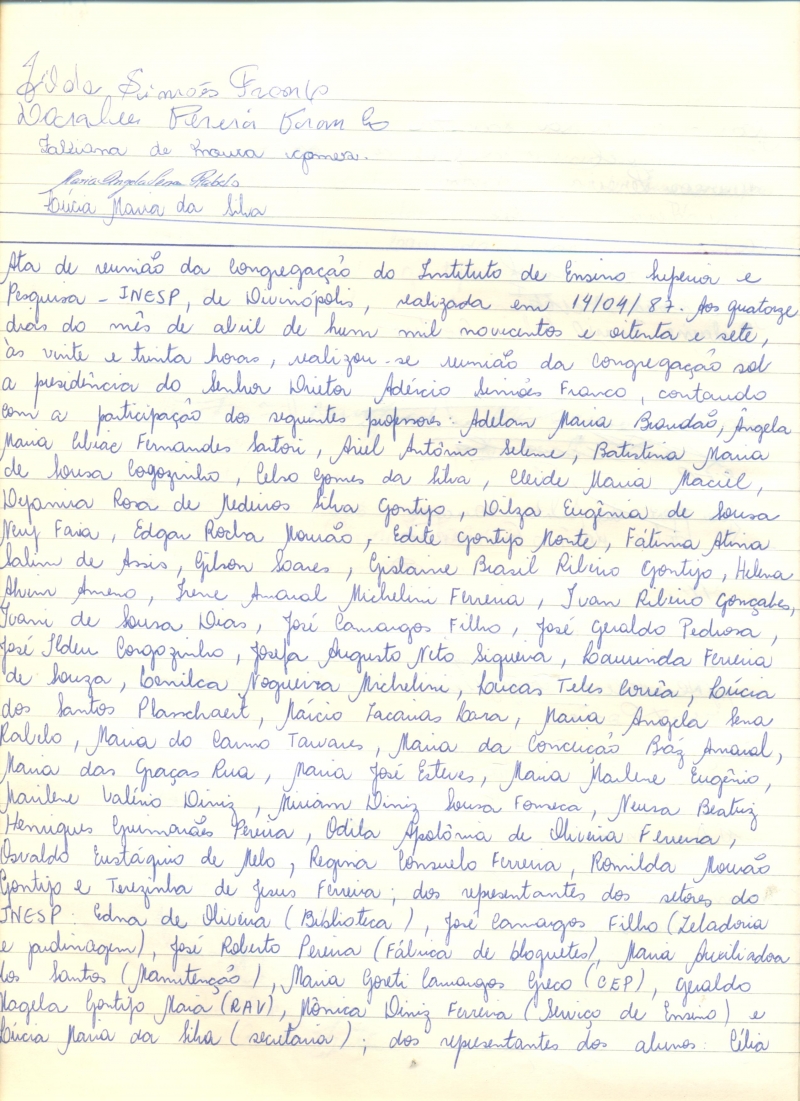 Gilda Simões Franco
Pereira Franco
de Moura
Maria Angela Sena Rabelo
Lúcia Maria da Silva
Ata de reunião da Congregação do Instituto de Ensino Superior e
Pesquisa - INESP, de Divinópolis, realizada em 14/04/87. Aos quatorze
dias do mês de abril de hum mil novecentos e oitenta e sete,
às vinte e trinta horas, realizou-se reunião da Congregação sob
a presidência do Senhor Diretor Adércio Simões Franco, contando
com a participação dos seguintes professores: Adelan Maria Brandão, Ângela
Maria Liliac Fernandes Sartori, Ariel Antônio Seleme, Batistina Maria
de Sousa Cogozinho, Celso Gomes da Silva, Cleide Maria Maciel,
Dejanira Rosa de Medeiros Silva Gontijo, Dilza Eugênia de Sousa
Nery Faria, Edgar Rocha Mourão, Edite Gontijo Monte, Fátima Atina
Salim de Assis, Gilson Soares, Gislaine Brasil Ribeiro Gontijo, Helena
Alvim Ameno, Irene Amaral Michelini Ferreira, Ivan Ribeiro Gonçalves,
Ivani de Sousa Dias, José Camargos Filho, José Geraldo Pedrosa,
José Ildeu Corgozinho, Josefa Augusto Neto Siqueira, Laurinda Ferreira
de Souza, Lenilca Nogueira Michelini, Lucas Teles Corrêa, Lúcia
dos Santos Plasschaert, Márcio Zacarias Lara, Maria Angela Sena
Rabelo, Maria do Carmo Tavares, Maria da Conceição Báz Amaral,
Maria das Graças Rua, Maria José Esteves, Maria Marlene Eugênio,
Marilene Valério Diniz, Miriam Diniz Sousa Fonseca, Neusa Beatriz
Henriques Guimarães Pereira, Odila Apolônia de Oliveira Ferreira,
Osvaldo Eustáquio de Melo, Regina Consuelo Ferreira, Romilda Mourão
Gontijo e Terezinha de Jesus Ferreira; dos representantes dos setores do
INESP: Edna de Oliveira (Biblioteca), José Camargos Filho (Zeladoria
e jardinagem), José Roberto Pereira (Fábrica de bloquetes), Maria Auxiliadora
dos Santos (Manutenção), Maria Goreti Camargos Greco (CEP), Geraldo
Magela Gontijo Maia (RAV), Mônica Diniz Ferreira (Serviço de Ensino) e
Lúcia Maria da Silva (secretaria); dos representantes dos alunos: Célia